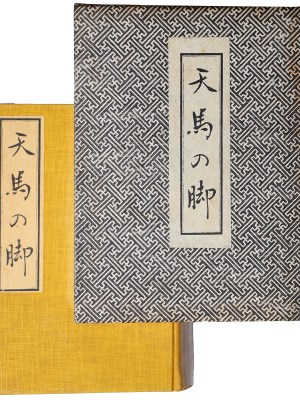 天馬の脚
天馬の脚